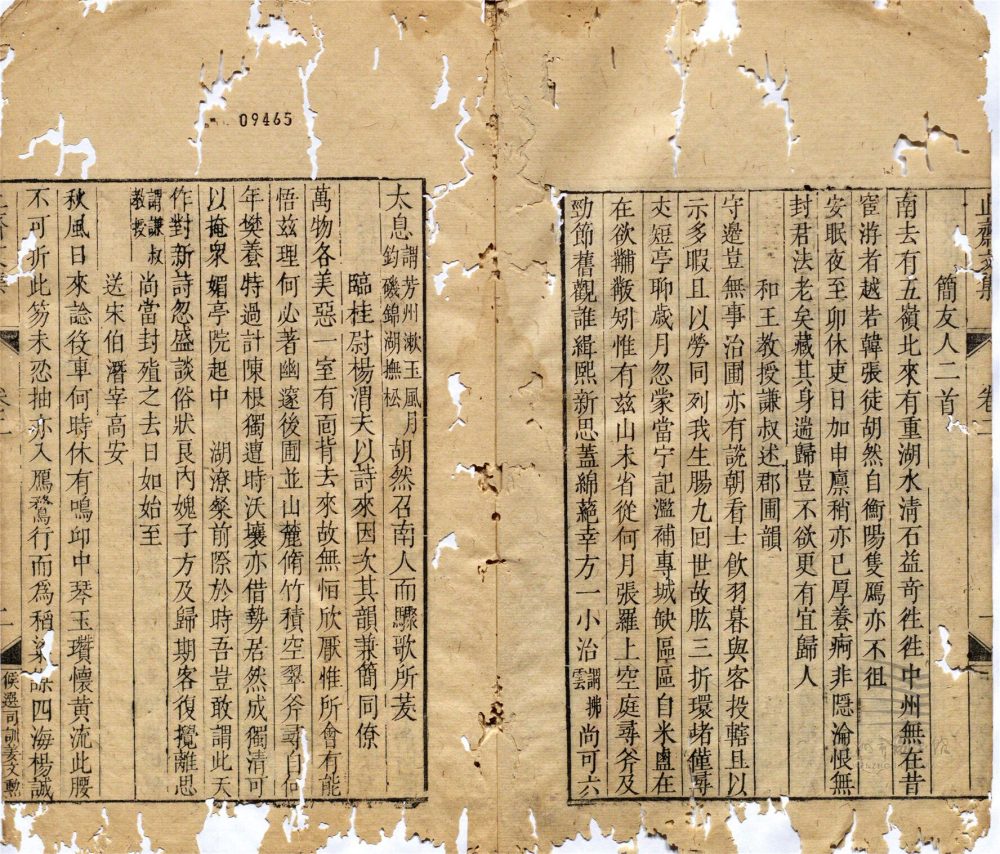 止齋文集 卷二 一
簡友人二首
南去有五嶺北來有重湖水清石益奇徃徃中州無在昔
宦游者越若韓張徒胡然自衡陽隻鴈亦不徂
安眠夜至卯休吏日加申廪稍亦已厚養痾非隠淪恨無
封君法老矣藏其身遄歸豈不欲更有宜歸人
和王教授謙叔述郡圃韻
守邊豈無事治圃亦有説朝看士飲羽暮與客投轄且以
示多暇且以勞同列我生腸九回世故肱三折環堵僅辱
夾短亭聊歳月忽蒙當宁記濫補專城缺區區自米鹽在
在欲黼黻矧惟有兹山未省從何月張羅上空庭尋斧及
勁節舊觀誰緝熙新思蓋綿蕝幸方一小治謂拂雲尚可六
太息謂芳州漱玉風月鈞磯錦湖撫松胡然召南人而驟歌所茇
臨桂尉楊渭夫以詩來因次其韻兼簡同僚
萬物各美惡一室有面背去來故無恒欣厭惟所會有能
悟兹理何必著幽邃後圃並山麓脩竹積空翠斧尋自何
年樊養特過計陳根獨遭時沃壤亦借勢居然成獨清可
以掩衆媚亭院起中 湖潦粲前際於時吾豈敢謂此天
作對新詩忽盛談俗狀良内媿子方及歸期客復攪離思
謂謙叔教授尚當封殖之去日如始至
送宋伯潛宰高安
秋風日來諗後車何時休有鳴邱中琴玉瓚懐黄流此腰
不可折此笏未忍抽亦入鴈鶩行而爲稻粱謀四海楊誠
二
候選司訓姜文勲
09465